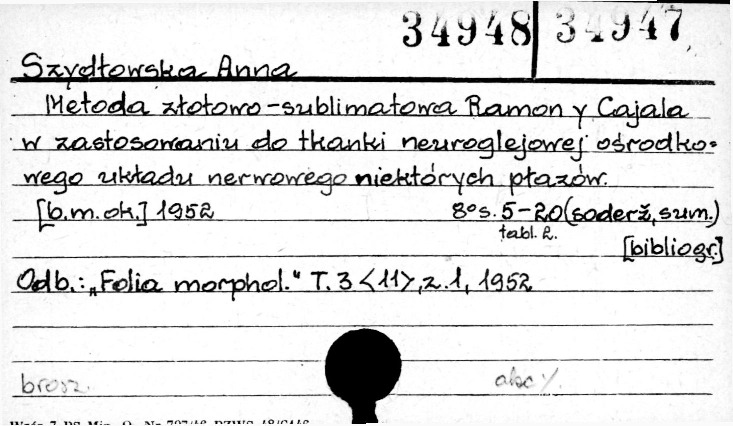 34948 34947
Szydłowska Anna
Metoda złotowo-sublimatowa Ramon y Cajala
w zastosowaniu do tkanki neuroglejowej ośrodko=
wego układu nerwowego niektórych płazów.
[b.m.ok.] 1952 8° s. 5-20 (soderž, sum.)
tabl. 2.
[bibliogr.]
Odb.: „Folia morphol." T. 3 <11>, z. 1, 1952
brosz.